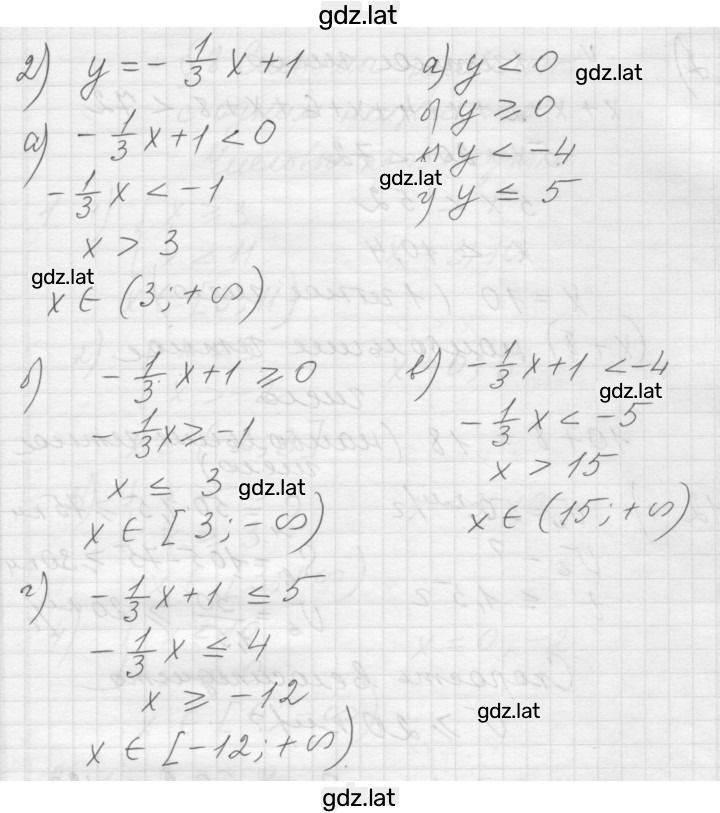 gdz.lat
2) y = - 1/3 x + 1
а) y < 0
gdz.lat
б) y ⩾ 0
а) - 1/3 x + 1 < 0
в) y < -4
gdz.lat
- 1/3 x < -1
г) y ≤ 5
x > 3
gdz.lat
x ∈ (3; +∞)
б) - 1/3 x + 1 ⩾ 0
- 1/3 x ⩾ -1
x ≤ 3
gdz.lat
x ∈ [3; -∞)
в) - 1/3 x + 1 < -4
gdz.lat
- 1/3 x < -5
x > 15
x ∈ (15; +∞)
г) - 1/3 x + 1 ≤ 5
- 1/3 x ≤ 4
x ⩾ -12
gdz.lat
x ∈ [-12; +∞)
gdz.lat